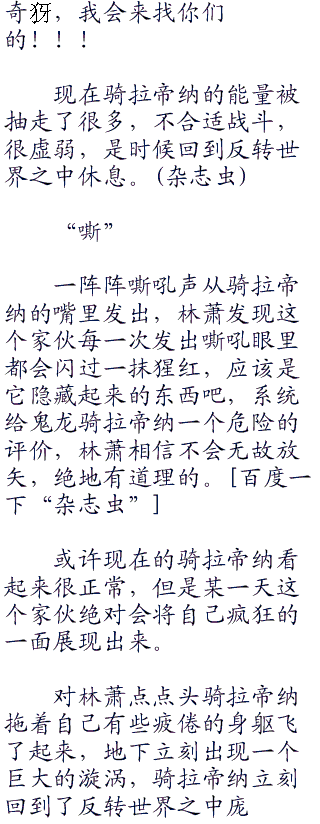 奇犽，我会来找你们
的！！！
现在骑拉帝纳的能量被
抽走了很多，不合适战斗，
很虚弱，是时候回到反转世
界之中休息。(杂志虫)
“嘶”
一阵阵嘶吼声从骑拉帝
纳的嘴里发出，林萧发现这
个家伙每一次发出嘶吼眼里
都会闪过一抹猩红，应该是
它隐藏起来的东西吧，系统
给鬼龙骑拉帝纳一个危险的
评价，林萧相信不会无故放
矢，绝地有道理的。[百度一
下“杂志虫”]
或许现在的骑拉帝纳看
起来很正常，但是某一天这
个家伙绝对会将自己疯狂的
一面展现出来。
对林萧点点头骑拉帝纳
拖着自己有些疲倦的身躯飞
了起来，地下立刻出现一个
巨大的漩涡，骑拉帝纳立刻
回到了反转世界之中庞